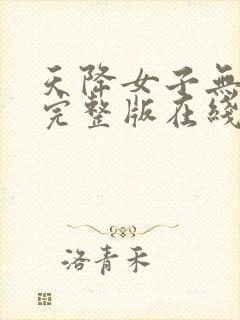 天降女子無
完整版在綫
洛青禾